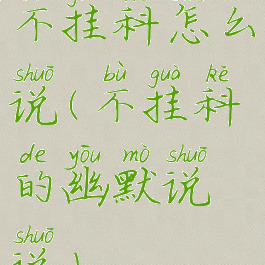 不挂科怎么
shuō bù guà kē
说(不挂科
de yōu mò shuō
的幽默说
shuō
说)